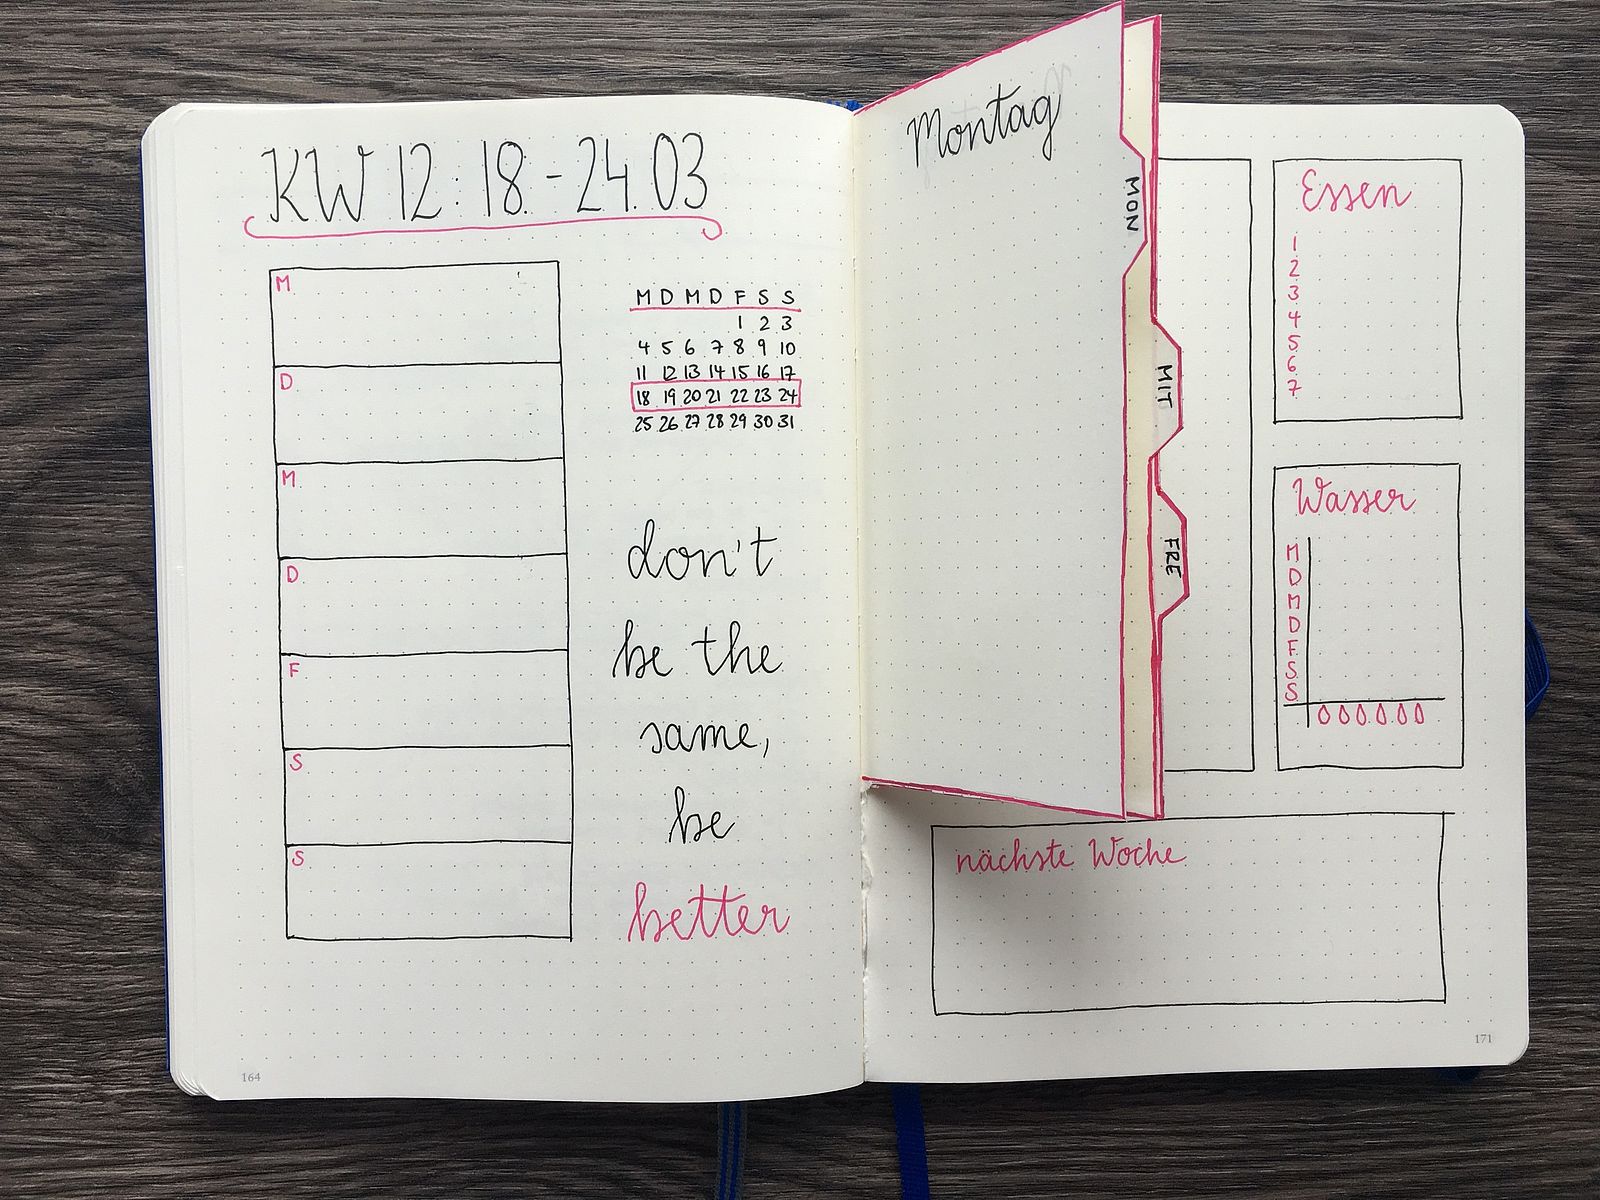 KW 12: 18. - 24.03
M
D
M
D
F
S
S
M D M D F S S
1 2 3
4 5 6 7 8 9 10
11 12 13 14 15 16 17
18 19 20 21 22 23 24
25 26 27 28 29 30 31
don't
be the
same,
be
better
164
Montag
MON
MIT
FRE
Essen
1
2
3
4
5
6
7
Wasser
M
D
M
D
F
S
S
nächste Woche
171